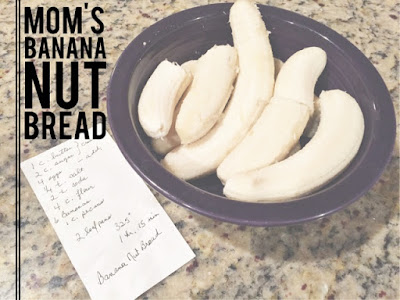 MOM'S
BANANA
NUT
BREAD
1 c. butter
2 c. sugar
4 eggs
2 t. soda
4 c. flour
6 bananas
1 c. pecans
2 loaf pans 325°
1 hr. 15 min
Banana Nut Bread